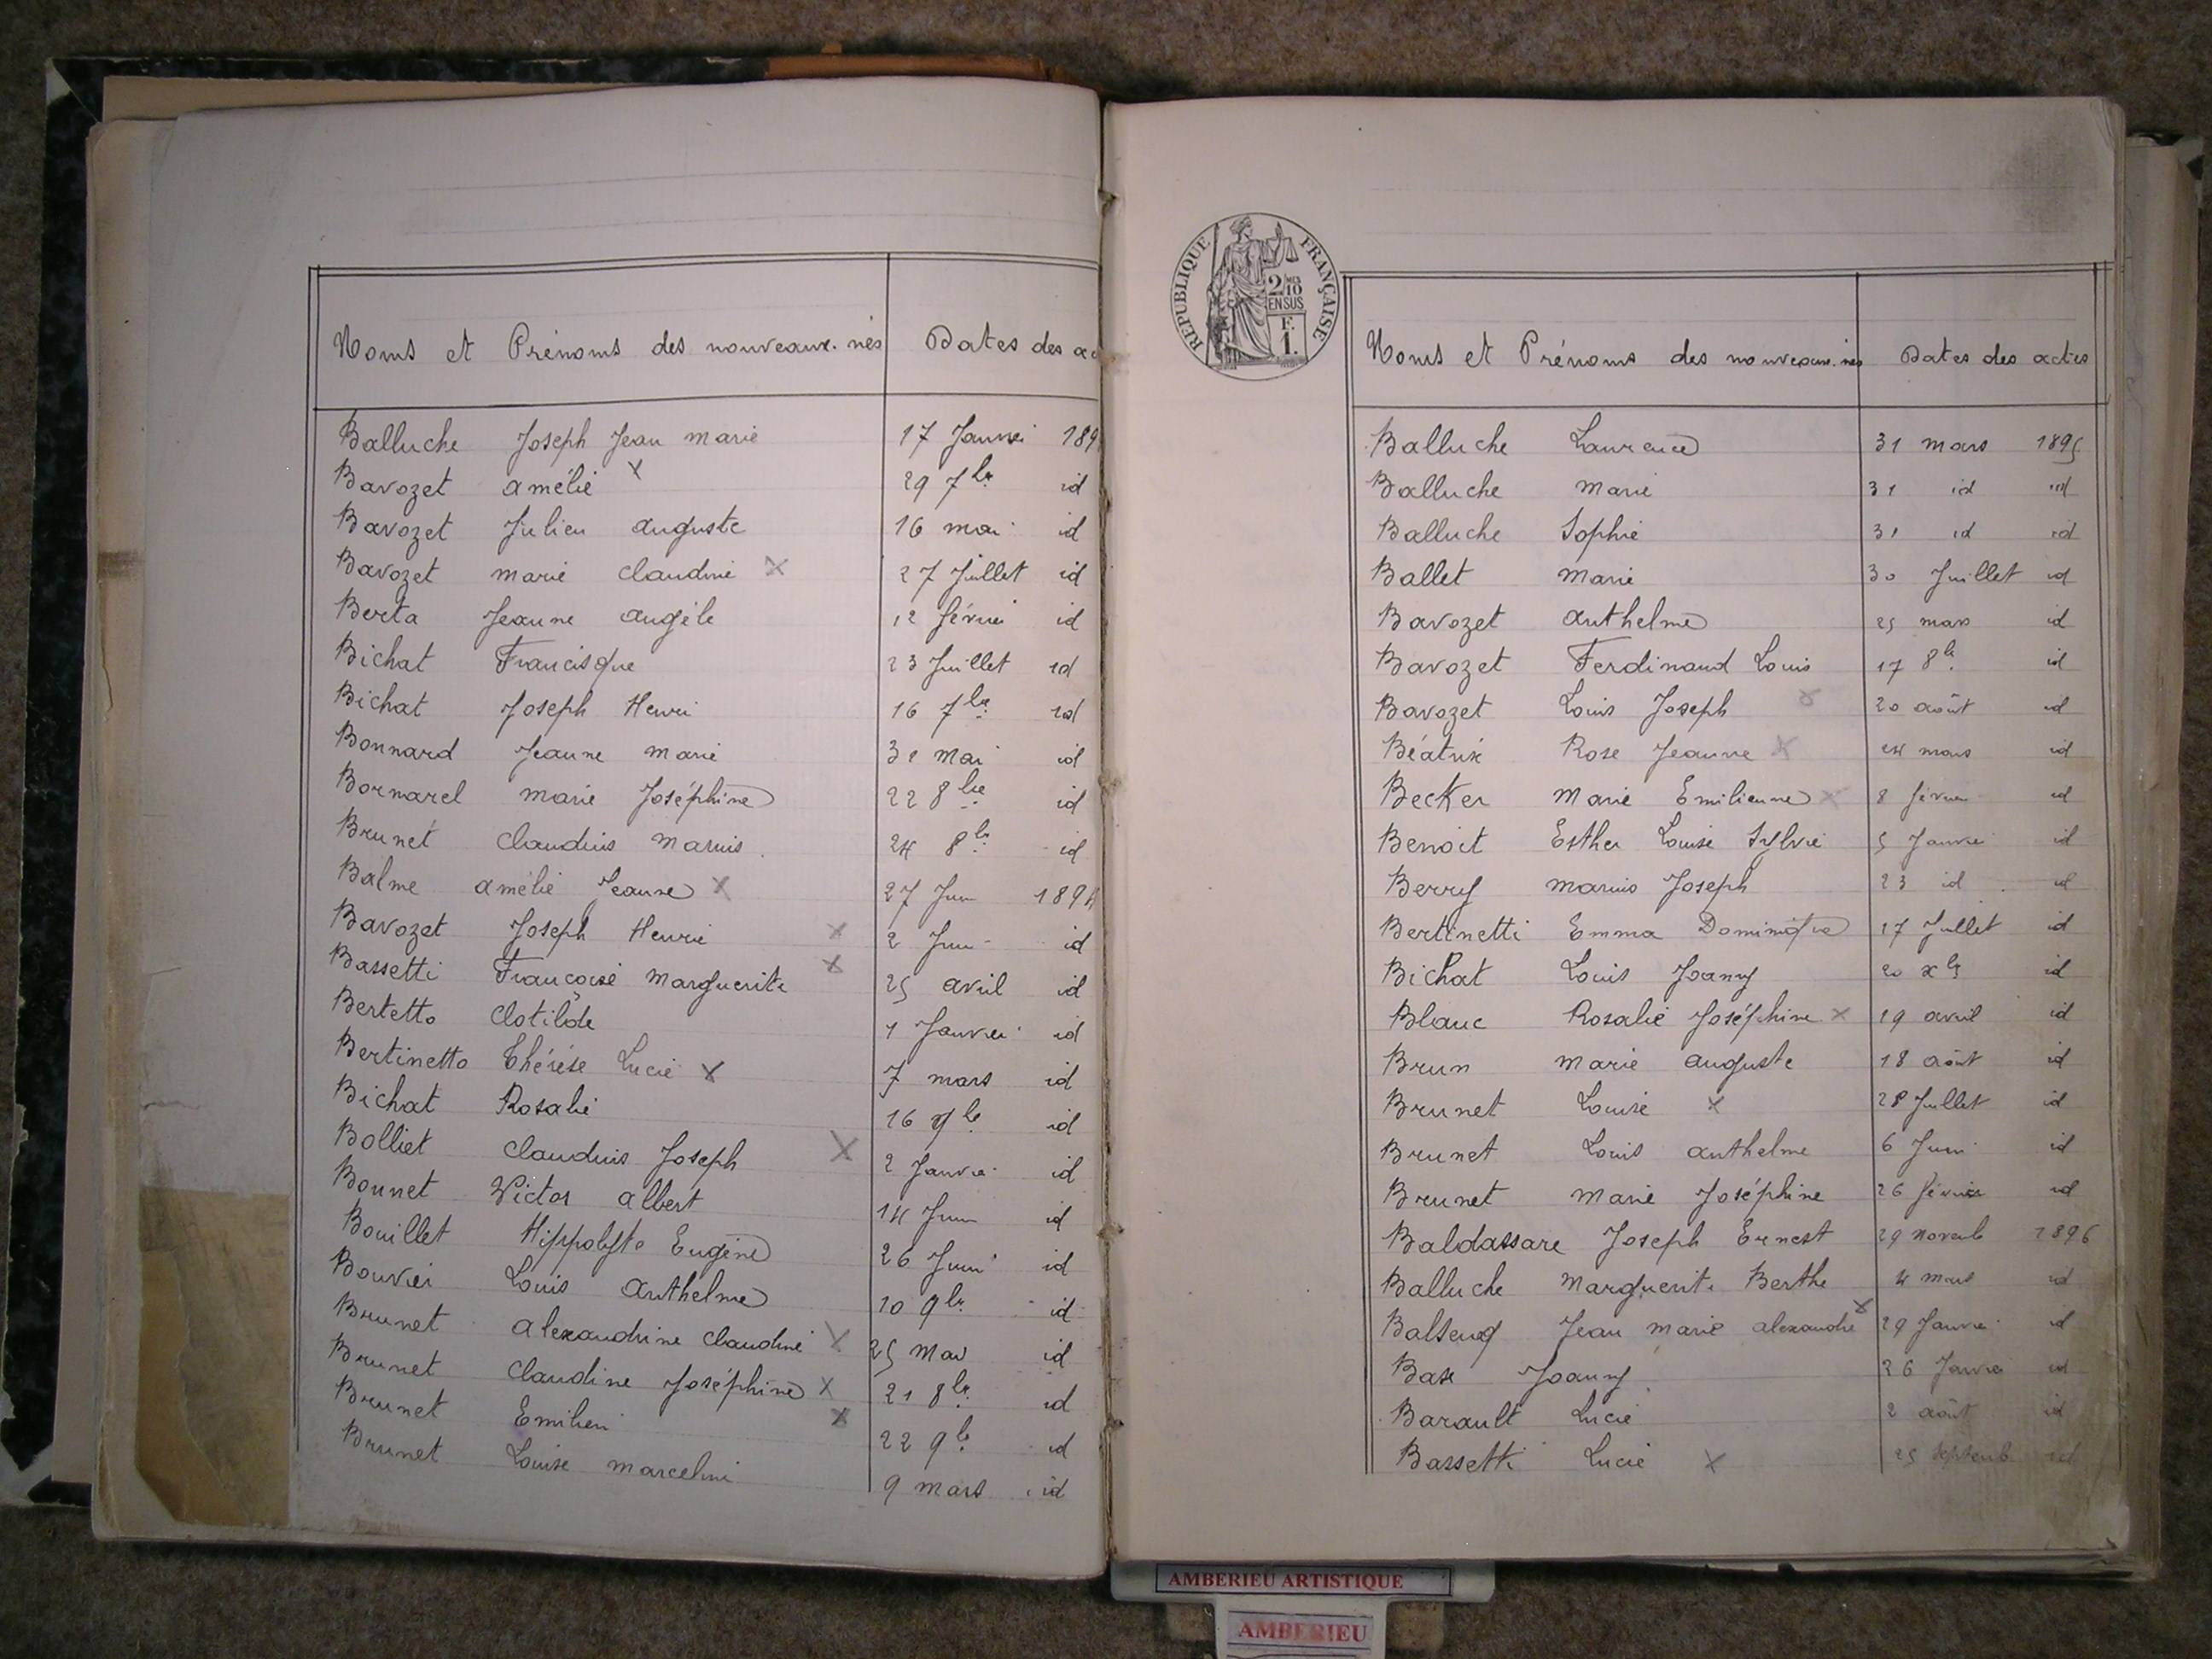 Noms et Prénoms des nouveaux-nés Dates des ac
Balluche Joseph Jean marie 17 Janvei 189
Bavozet amélie x 29 7bre id
Bavozet Julien auguste 16 mai id
Bavozet marie claudine x 27 Juillet id
Berta Jeanne angèle 12 février id
Bichat Francisque 23 Juillet id
Bichat Joseph Henri 16 7bre id
Bonnard Jeanne marie 31 mai id
Bornarel marie Joséphine 22 8bre id
Brunet claudius marius 24 8bre id
Balme amélie Jeanne x 27 Juin 1894
Bavozet Joseph Henri x 2 Juin id
Bassetti Françoise marguerite x 25 avril id
Bertetto clotilde 1 Janvier id
Bertinetto Thérèse Lucie x 7 mars id
Bichat Rosalie 16 id
Bolliet claudius Joseph x 2 Janvier id
Bonnet Victor albert 14 Juin id
Bouillet Hippolyte Eugène 26 Juin id
Bouvier Louis anthelme 10 9bre id
Brunet alexandrine claudine x 25 mai id
Brunet claudine Joséphine x 21 8bre id
Brunet Emilien x 22 9bre id
Brunet Louise marceline 9 mars id
REPUBLIQUE FRANÇAISE
2/10
EN SUS
F.
1.
Noms et Prénoms des nouveaux-nés Dates des actes
Balluche Laurence 31 mars 1895
Balluche marie 31 id id
Balluche Sophie 31 id id
Ballet marie 30 Juillet id
Bavozet anthelme 25 mars id
Bavozet Ferdinand Louis 17 8bre id
Bavozet Louis Joseph 20 août id
Béatrix Rose Jeanne x 24 mars id
Becker marie Emilienne x 8 février id
Benoit Esther Louise Sylvie 5 Janvier id
Berry marius Joseph 23 id id
Bertinetti Emma Dominique 17 Juillet id
Bichat Louis Joany 20 xbre id
Blanc Rosalie Joséphine x 19 avril id
Brun marie auguste 18 août id
Brunet Louise x 28 Juillet id
Brunet Louis anthelme 6 Juin id
Brunet marie Joséphine 26 février id
Baldassare Joseph Ernest 29 Novemb 1896
Balluche marguerite Berthe 4 mars id
Jean marie alexandre x 29 Janvier id
Base Joany 26 Janvier id
Barault Lucie 2 août id
Bassetti Lucie x 25 septemb id
AMBERIEU ARTISTIQUE
AMBERIEU